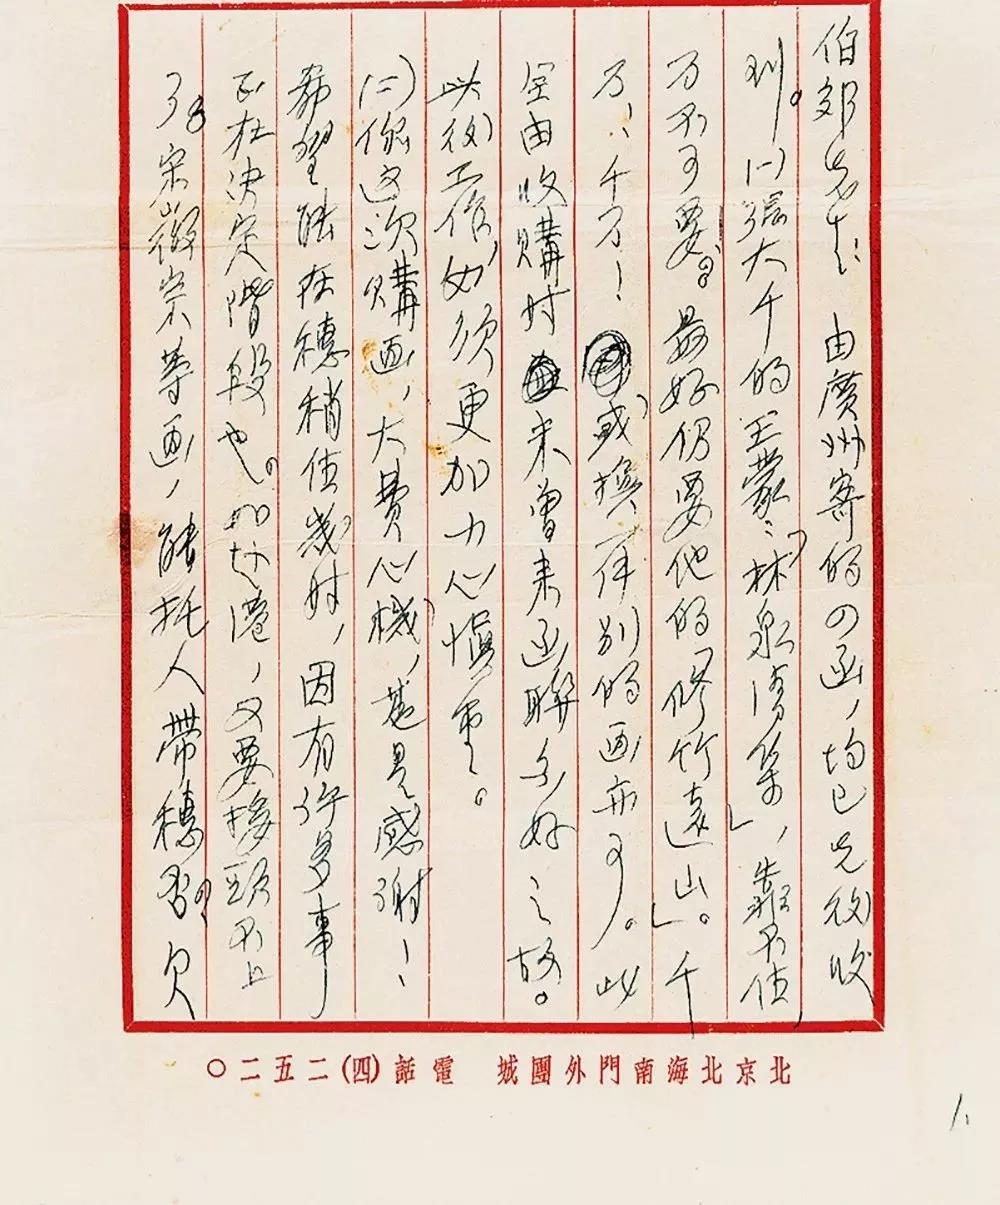 伯郊先生:由廣州寄的四函,均已先後收
到。(一)張大千的王蒙:「林泉清集」,靠不住,
万不可要。最好仍要他的「修竹遠山」。千
万、千万!或換一件別的画亦可。此
全由收購时未曾来函聯系好之故。
以後工作,必須更加小心慎重。
(二)你这次購画,大費心機,甚是感謝!
希望能在穗稍住幾时,因有许多事
正在決定階段也。如赴港,又要接頭不上
了。宋徽宗等画,能托人帶穗否?欠
北京北海南門外團城 電話(四)二五二〇
1.